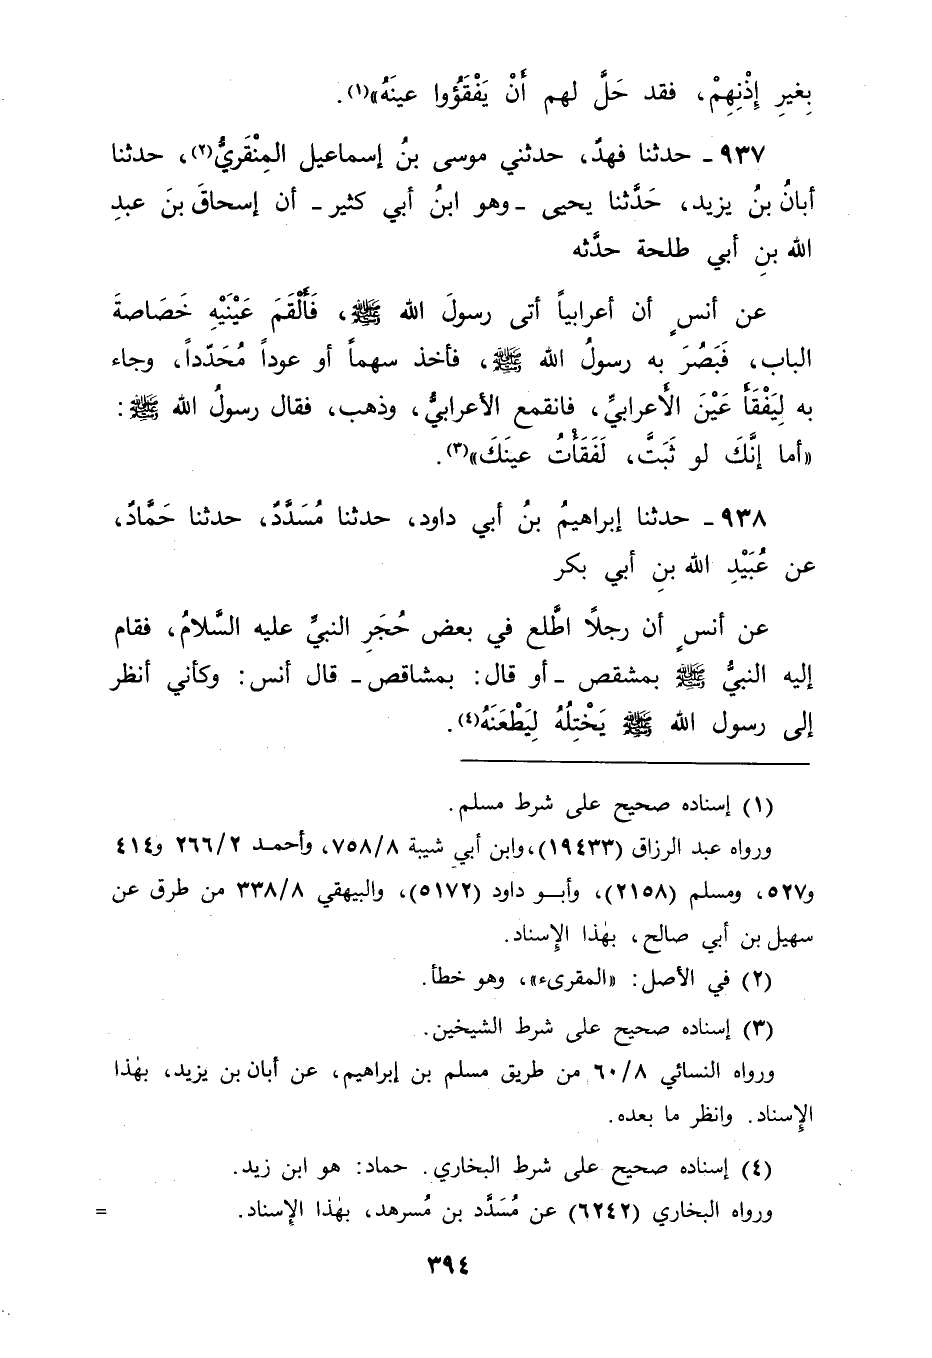 بِغيرِ إِذْنِهِمْ، فقد حَلَّ لهم أَنْ يَفْقَؤُوا عينَهُ»(١).
٩٣٧ ـ حدثنا فهدٌ، حدثني موسى بنُ إسماعيل المِنْقَريُّ(٢)، حدثنا
أبانُ بنُ يزيد، حَدَّثنا يحيى ـ وهو ابنُ أبي كثير ـ أن إسحاقَ بنَ عبدِ
الله بنِ أبي طلحة حدَّثه
عن أنسٍ أن أعرابياً أتى رسولَ الله ﷺ، فَأَلْقَمَ عَيْنَيْهِ خَصَاصةَ
الباب، فَبَصُرَ به رسولُ الله ﷺ، فأخذ سهماً أو عوداً مُحَدّداً، وجاء
به لِيَفْقَأَ عَيْنَ الأعرابيِّ، فانقمع الأعرابيُّ، وذهب، فقال رسولُ الله ﷺ:
«أما إنَّكَ لو ثَبَتَّ، لَفَقَأْتُ عينَكَ»(٣).
٩٣٨ ـ حدثنا إبراهيمُ بنُ أبي داود، حدثنا مُسَدَّدٌ، حدثنا حَمَّادٌ،
عن عُبَيْدِ الله بنِ أبي بكر
عن أنسٍ أن رجلًا اطَّلع في بعض حُجَرِ النبيِّ عليه السَّلامُ، فقام
إليه النبيُّ ﷺ بمشقص ـ أو قال: بمشاقص ـ قال أنس: وكأني أنظر
إلى رسول الله ﷺ يَخْتِلُهُ لِيَطْعَنَهُ(٤).
(١) إسناده صحيح على شرط مسلم.
ورواه عبد الرزاق (١٩٤٣٣)، وابن أبي شيبة ٧٥٨/٨، وأحمد ٢٦٦/٢ و٤١٤
و٥٢٧، ومسلم (٢١٥٨)، وأبو داود (٥١٧٢)، والبيهقي ٣٣٨/٨ من طرق عن
سهيل بن أبي صالح، بهٰذا الإِسناد.
(٢) في الأصل: «المقرىء»، وهو خطأ.
(٣) إسناده صحيح على شرط الشيخين.
ورواه النسائي ٦٠/٨ من طريق مسلم بن إبراهيم، عن أبان بن يزيد، بهٰذا
الإِسناد. وانظر ما بعده.
(٤) إسناده صحيح على شرط البخاري. حماد: هو ابن زيد.
ورواه البخاري (٦٢٤٢) عن مُسَدَّد بن مُسرهد، بهٰذا الإِسناد. =
٣٩٤